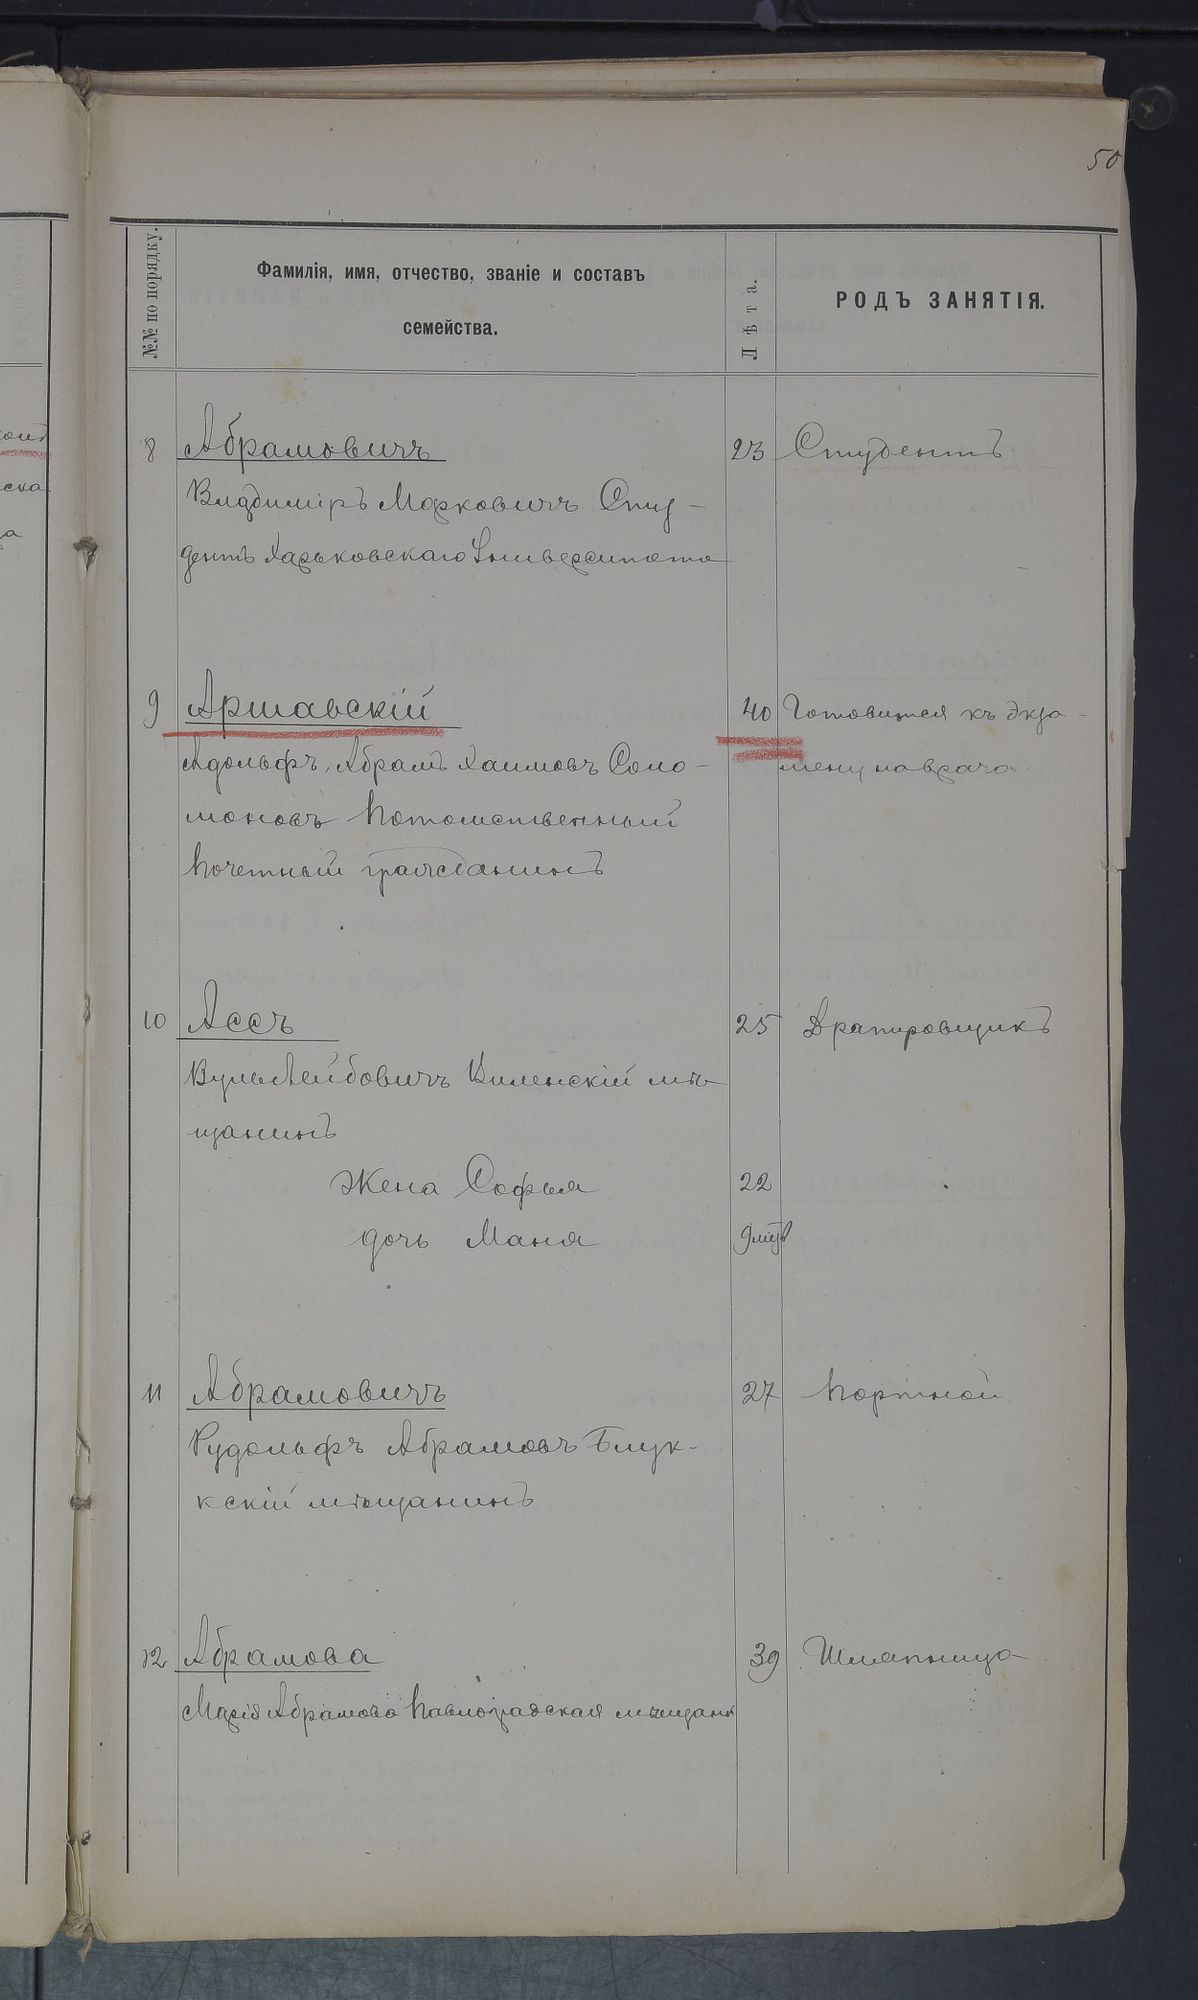 50
№№ по порядку.
Фамилія, имя, отчество, званіе и составъ
семейства.
Лѣта.
РОДЪ ЗАНЯТІЯ.
8 Абрамовичъ 23 Студентъ
Владиміръ Марковичъ Сту-
дентъ Харьковскаго Университета
9 Аршавскій 40 Готовится къ экза-
Адольфъ, Абрамъ Хаимовъ Соло- мену на врача
моновъ Потомственный
Почетный гражданинъ
10 Ассъ 25 Драпировщикъ
Вульф Лейбовичъ Виленскій мѣ-
щанинъ
Жена Софья 22
дочь Маня 9 мѣс
11 Абрамовичъ 27 Портной
Рудольфъ Абрамовъ
кскій мѣщанинъ
12 Абрамова 39 Шляпница
Марія Абрамова Павлоградская мѣщанк